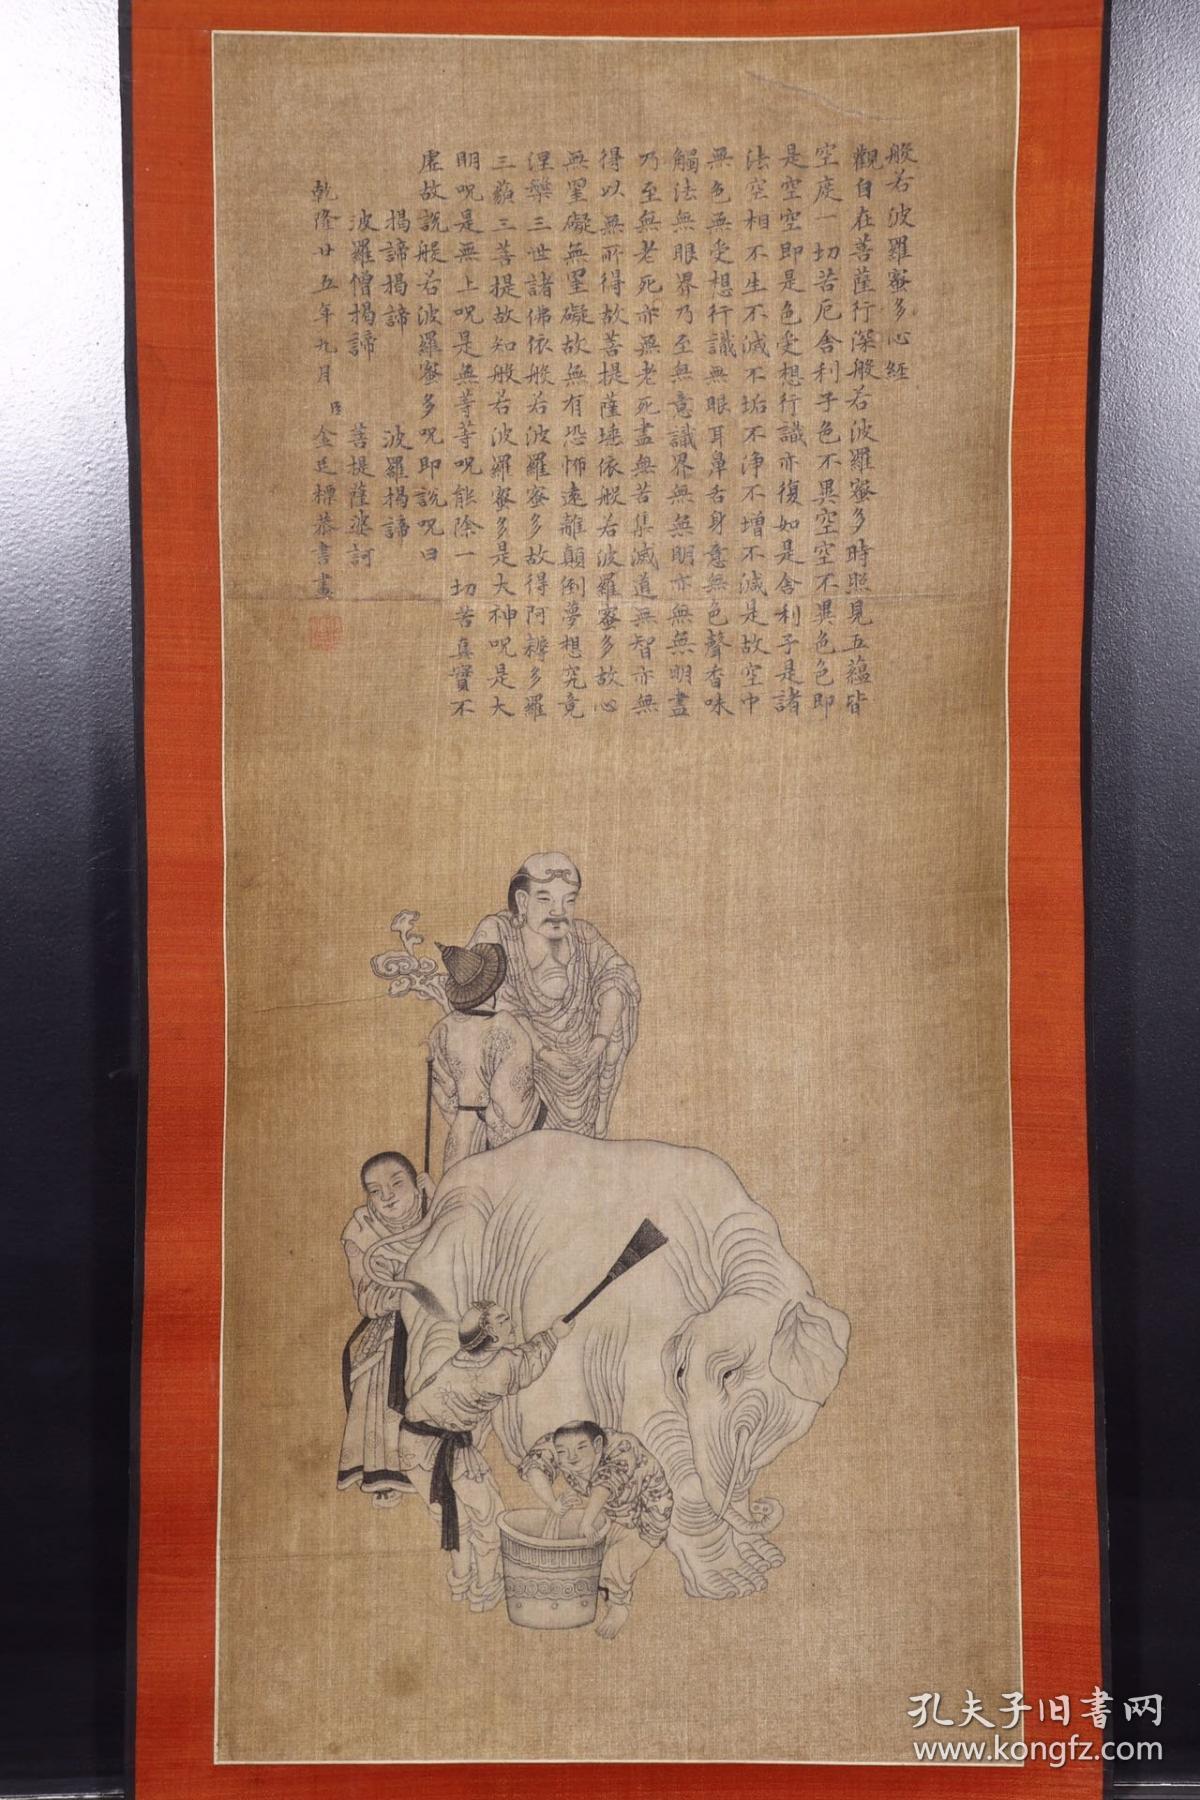 般若波羅蜜多心經
觀自在菩薩行深般若波羅蜜多時照見五蘊皆
空度一切苦厄舍利子色不異空空不異色色即
是空空即是色受想行識亦復如是舍利子是諸
法空相不生不滅不垢不淨不增不減是故空中
無色無受想行識無眼耳鼻舌身意無色聲香味
觸法無眼界乃至無意識界無無明亦無無明盡
乃至無老死亦無老死盡無苦集滅道無智亦無
得以無所得故菩提薩埵依般若波羅蜜多故心
無罣礙無罣礙故無有恐怖遠離顛倒夢想究竟
涅槃三世諸佛依般若波羅蜜多故得阿耨多羅
三藐三菩提故知般若波羅蜜多是大神呪是大
明呪是無上呪是無等等呪能除一切苦真實不
虛故說般若波羅蜜多呪即說呪曰
揭諦揭諦 波羅揭諦
波羅僧揭諦 菩提薩婆訶
乾隆廿五年九月 臣金廷標恭書畫
孔夫子旧书网
www.kongfz.com